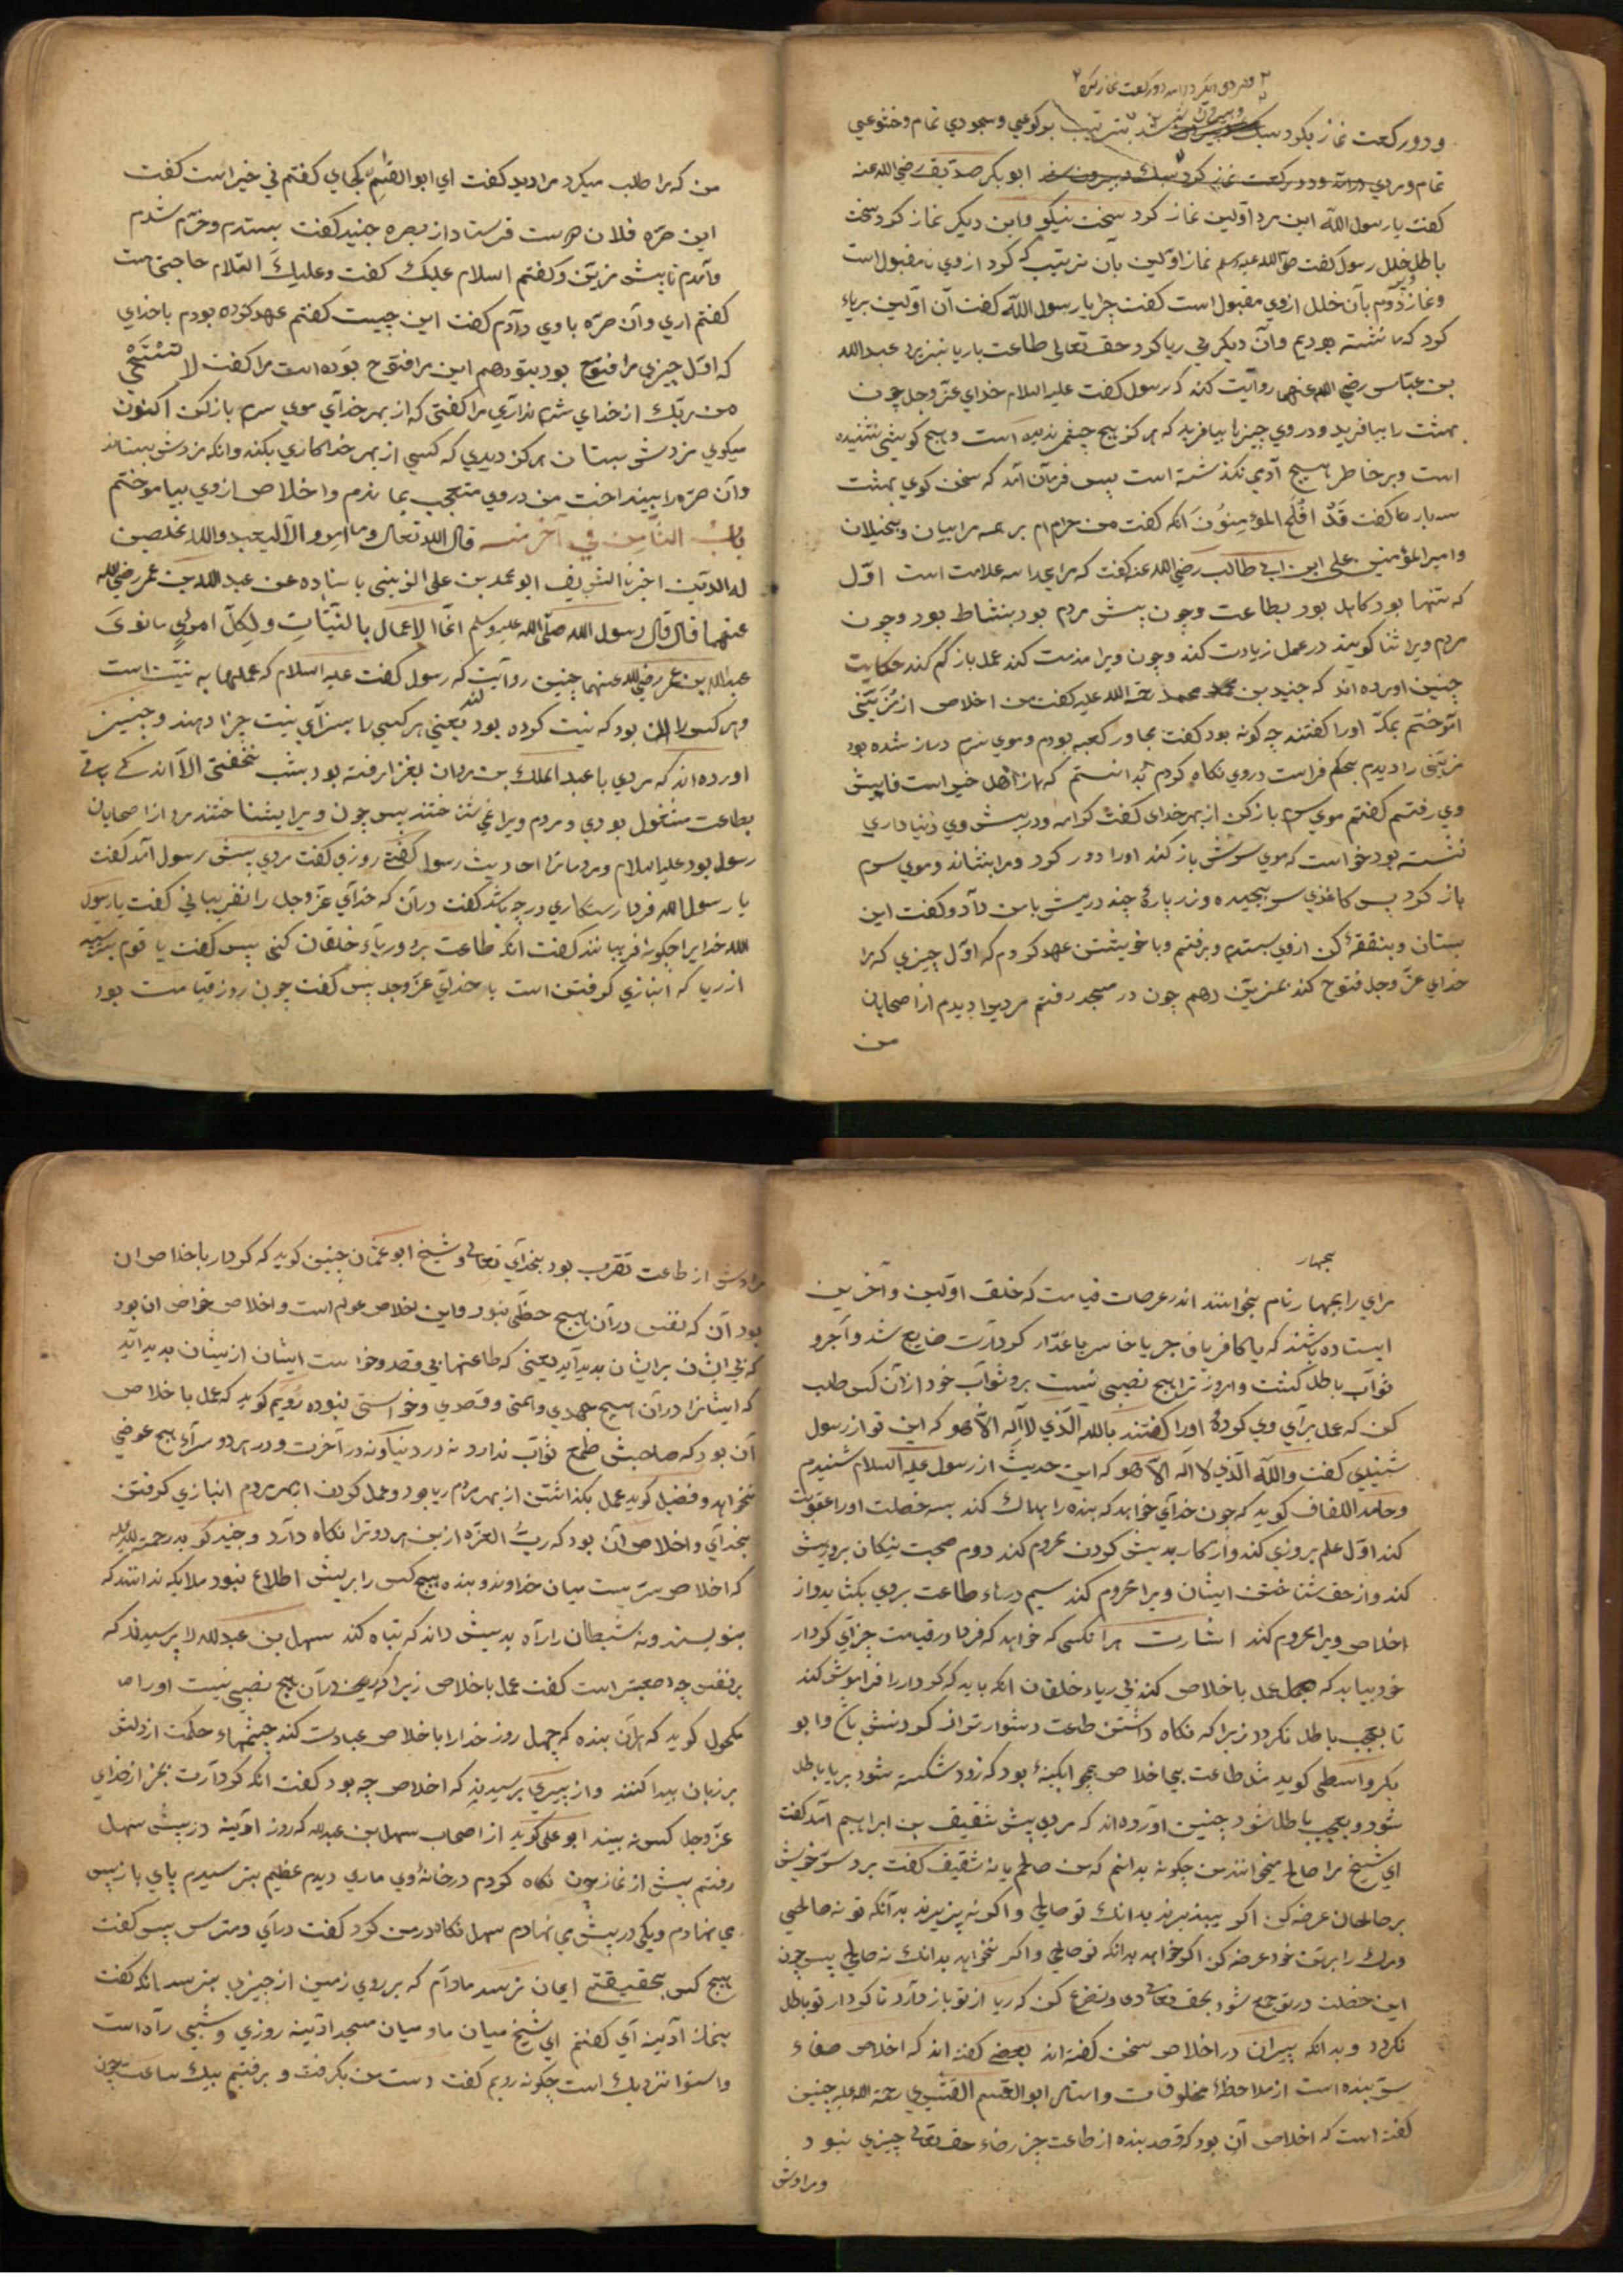 و دو رکعت نماز بکرد سبک بترتیب برکوعی و سجودی تمام و خشوعی
تمام و مردی درآمد و دو رکعت نماز کرد سبک و بیرون شد ابوبکر صدیق رضی الله عنه
کفت یا رسول الله این مرد اولین نماز کرد سخت نیکو و این دیکر نماز کرد سخت
با خلل رسول کفت صلی الله علیه وسلم نماز اولین بآن ترتیب که کرد از وی نامقبول است
و نماز دوم بآن خلل از وی مقبول است کفت چرا یا رسول الله کفت آن اولین بریاء
کرد که ما نشسته بودیم وآن دیکر بی ریا کرد حق تعالی طاعت با ریا نپزیرد عبد الله
بن عباس رضی الله عنهما روایت کند که رسول کفت علیه السلام خدای عز وجل چون
بهشت را بیافرید و در وی چیزها بیافرید که هرکز هیچ چشم ندیده است و هیچ کوشی نشنیده
است و بر خاطر هیچ آدمی نکذشته است پس فرمان آمد که سخن کوی بهشت
سه بار ها کفت قَدْ اَفْلَحَ المؤمِنُونَ آنکه کفت من حرام ام بر همه مرایان و بخیلان
و امیر المؤمنین علی ابن ابی طالب رضی الله عنه کفت که مرای را سه علامت است اول
که تنها بود کاهل بود بطاعت و چون پیش مردم بود بنشاط بود و چون
مردم ویرا ثنا کویند در عمل زیادت کند و چون ویرا مذمت کند عمل باز کم کند حکایت
چنین اورده اند که جنید بن محمد رحمة الله علیه کفت من اخلاص از مزینی
آموختم بمکه اورا کفتند چه کونه بود کفت مجاور کعبه بودم و موی سرم دراز شده بود
مزینی را دیدم در وی نکاه کردم بدانستم که از اهل خیر است فاپیش
وی رفتم کفتم موی سرم باز کن از بهر خدای کفت کرامه و در پیش وی دنیاداری
نشسته بود خواست که موی سرش باز کند اورا دور کرد و مرا بنشاند و موی سرم
باز کرد پس کاغذی سر پیچیده و زر پارهٔ چند در پیش با من داد و کفت این
بستان و بنفقه کن از وی بستدم و برفتم و با خویشتن عهد کردم که اول چیزی که مرا
خدای عز وجل فتوح کند بمزین دهم چون در مسجد رفتم مردی را دیدم از اصحابان
من
من که مرا طلب میکرد مرا دید کفت ای ابو القسم کجای کفتم فی خیر است کفت
این صره فلان دوست فرستاد از بصره جنید کفت بستدم و خرم شدم
و آمدم تا پیش مزین و کفتم السلام علیک کفت وعلیک السلام حاجتی هست
کفتم اری و آن صره با وی دادم کفت این چیست کفتم عهد کرده بودم با خدای
که اول چیزی مرا فتوح بود بتو دهم این مرا فتوح بوده است مرا کفت لا تستحی
من ربک از خدای شرم نداری مرا کفتی که از بهر خدای موی سرم باز کن اکنون
میکوی مزدش بستان هرکز دیدی که کسی از بهر خدا کاری بکند وانکه مزدش بستاند
و آن صره را بینداخت من در وی متعجب بماندم و اخلاص از وی بیاموختم
باب الثامن فی آخر منه قال الله تعالی وما امروا الا لیعبدوا الله مخلصین
له الدین اخبرنا الشریف ابو محمد بن علی الزینبی باسناده عن عبد الله بن عمر رضی الله
عنهما قال قال رسول الله صلی الله علیه وسلم انما الاعمال بالنیات ولکل امرئ ما نوی
عبد الله بن عمر رضی الله عنهما چنین روایت کند که رسول کفت علیه السلام که عملها به نیت است
و هر کس را آن بود که نیت کرده بود یعنی هر کسی را بسزای نیت جزا دهند و چنین
اورده اند که مردی با عبد الملک بن مروان بغزا رفته بود بشب نخفتی الا اندکی باقی
بطاعت مشغول بودی و مردم ویرا نمی شناختند پس چون ویرا بشناختند مرد از اصحابان
رسول بود علیه السلام و مردمانرا احادیث رسول کفتی روزی کفت مردی پیش رسول آمد کفت
یا رسول الله فردا رستکاری در چه باشد کفت درآن که خدای عز وجل را نفریبانی کفت یا رسول
الله خدایرا چکونه فریبانند کفت انکه طاعت برد وریاء خلقان کنی پس کفت یا قوم بپرهیزید
از ریا که انبازی کرفتن است با خدای عز وجل پس کفت چون روز قیامت بود
بچهار
مرای را بچهار نام بخوانند اندر عرصات قیامت که خلق اولین و آخرین
ایستاده باشند که یا کافر یا فاجر یا خاسر یا غدار کردارت ضایع شد و آجرو
ثواب باطل کشت و امروز ترا هیچ نصیبی نیست برو ثواب خود از آن کس طلب
کن که عمل برای وی کردهٔ اورا کفتند بالله الذی لا اله الا هو که این تو از رسول
شنیدی کفت والله الذی لا اله الا هو که این حدیث از رسول علیه السلام شنیدم
و حامد اللفاف کوید که چون خدای خواهد که بنده را هلاک کند بسه خصلت اورا عقوبت
کند اول علم بروزی کند و از کار بدیش کردن محروم کند دوم صحبت نیکان بروزیش
کند و از حق شناختن ایشان ویرا محروم کند سیم در طاعت بروی بکشاید و از
اخلاص ویرا محروم کند اشارت هرانکسی که خواهد که فردا در قیامت جزای کردار
خود بیابد که عمل باخلاص کند بی ریاء خلقان انکه باید که کردار را فراموش کند
تا بعجب باطل نکردد زیرا که نکاه داشتن طاعت دشوارتر از کردنش باشد و ابو
بکر واسطی کوید مثل طاعت بی اخلاص همچو ابکینهٔ بود که زود شکسته شود بریا باطل
شود و بعجب باطل شود چنین آورده اند که مردی پیش شقیق بن ابراهیم آمد کفت
ای شیخ مرا صالح میخوانند من چکونه بدانم که من صالحم یا نه شقیق کفت برو سر خویش
بر صالحان عرضه کن اکر بپذیرند بدانک تو صالحی و اکر نه پزیرند بدآنکه تو نه صالحی
و مرک را برتن خود عرضه کن اکر خواهد بدانکه تو صالحی و اکر نخواهد بدانک نه صالحی پس چون
این خصلت در تو جمع شود بحق تعالی دعا و تضرع کن که ریا از تو باز دارد تا کردار تو باطل
نکردد و بدانکه پیران در اخلاص سخن کفته اند بعضی کفته اند که اخلاص صفاء
سر بنده است از ملاحظهٔ مخلوقات و استاد ابو القسم القشیری رحمة الله علیه چنین
کفته است که اخلاص آن بود که قصد بنده از طاعت جز رضاء حق تعالی چیزی نبود
و مرادش
مرادش از طاعت تقرب بود بخدای تعالی و شیخ ابو عثمان چنین کوید که کردار باخلاص ان
بود آن که نفس درآن هیچ حظی نبود و این اخلاص عوام است و اخلاص خواص ان بود
که بی ایشان بر ایشان بدید آید یعنی که طاعتها بی قصد و خواست ایشان از یشان بدید آید
که ایشانرا درآن هیچ جهدی و همتی و قصدی و خواستی نبوده رویم کوید که عمل باخلاص
آن بود که صاحبش طمع ثواب ندارد نه در دنیا و نه در آخرت و در هر دو سرای هیچ عوضی
نخواهد و فضیل کوید عمل بکذاشتن از بهر مردم ریا بود و عمل کردن از بهر مردم انبازی کرفتن
بخدای و اخلاص آن بود که رب العزه ازین هر دو ترا نکاه دارد و جنید کوید رحمة الله علیه
که اخلاص سریست میان خداوند و بنده هیچ کس را بریش اطلاع نبود ملایکه ندانند که
بنویسند و نه شیطان را راه بدیش داند که تباه کند سهل بن عبد الله را پرسیدند که
بر نفس چه صعبتر است کفت عمل باخلاص زیرا که نفس را درآن هیچ نصیبی نیست اورا
مکحول کوید که هرآن بنده که چهل روز خدارا باخلاص عبادت کند چشمهاء حکمت از دلش
بر زبان پیدا کنند و از پیری پرسیدند که اخلاص چه بود کفت انکه کردارت بجز از خدای
عز وجل کس نه بیند ابو علی کوید از اصحاب سهل بن عبد الله که روز ادینه در پیش سهل
رفتم پیش از نماز چون نکاه کردم در خانهٔ وی ماری دیدم عظیم بترسیدم پای باز پس
می نهادم و یکی در پیش می نهادم سهل نکاه در من کرد کفت درآی و مترس پس کفت
هیچ کس بحقیقت ایمان نرسد مادام که بر روی زمین از چیزی بترسد انکه کفت
بنماز آدینه آی کفتم ای شیخ میان ما و میان مسجد ادینه روزی و شبی راه است
و استوا نزدیک است چکونه رویم کفت دست من بکرفت و برفتیم بیک ساعت چون